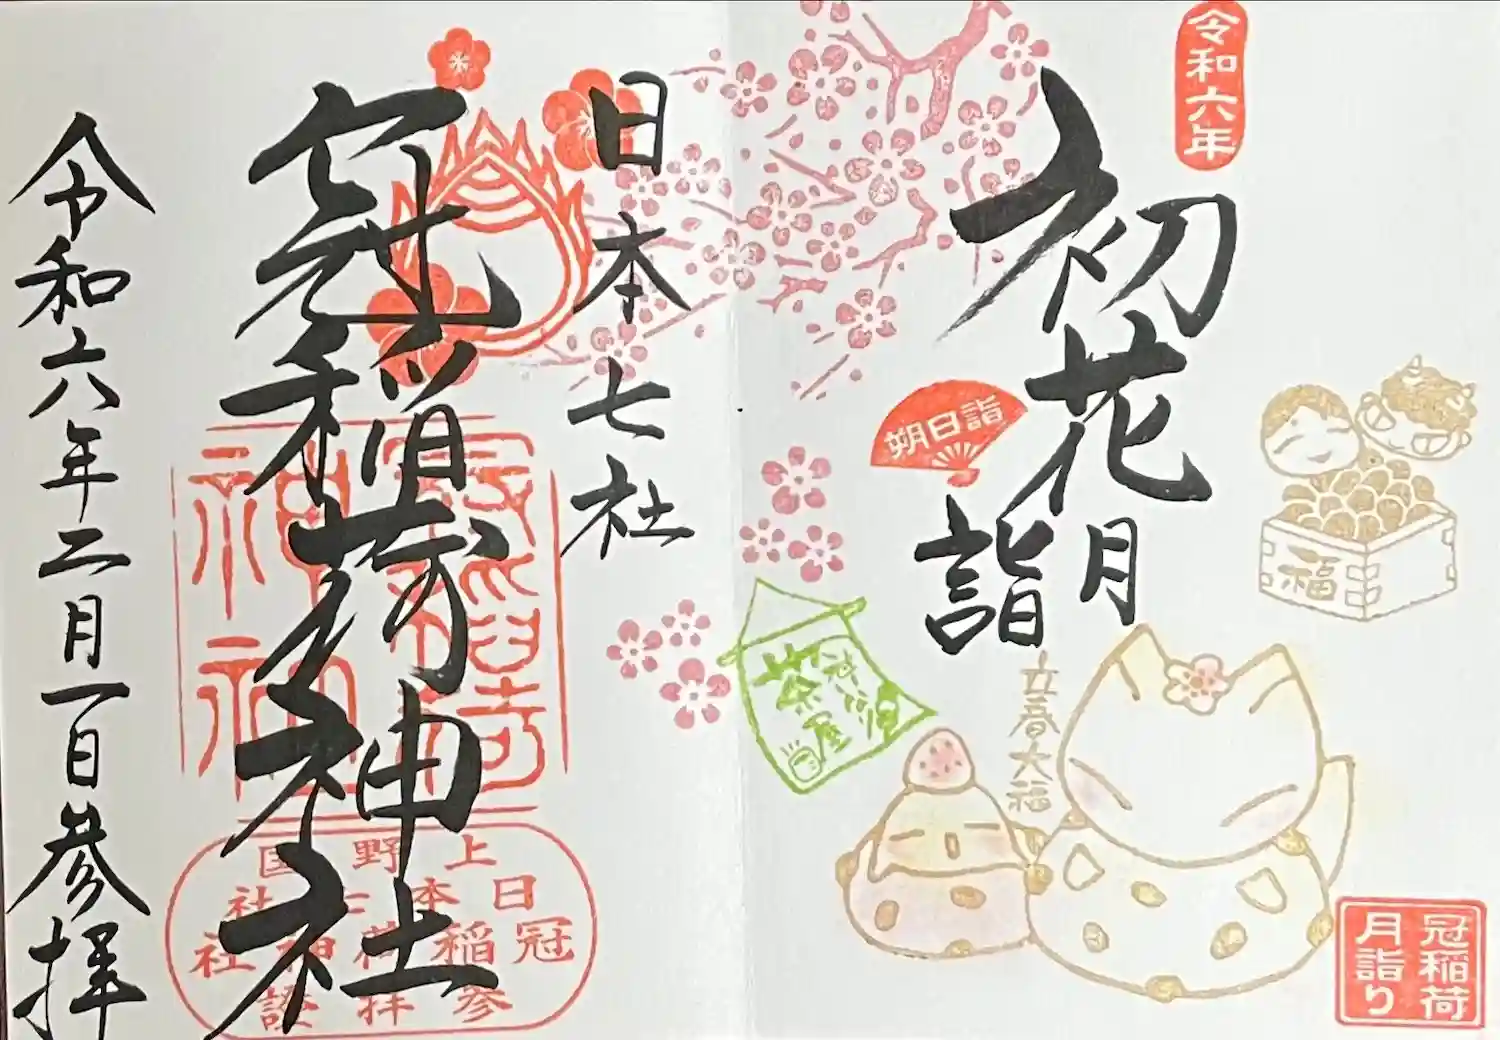 令和六年
初花月詣
朔日詣
福
立春大福
茶屋
冠稲荷
月詣り
日本七社
冠稲荷神社
上野国
日本七社
冠稲荷神社
参拝
令和六年二月一日参拝